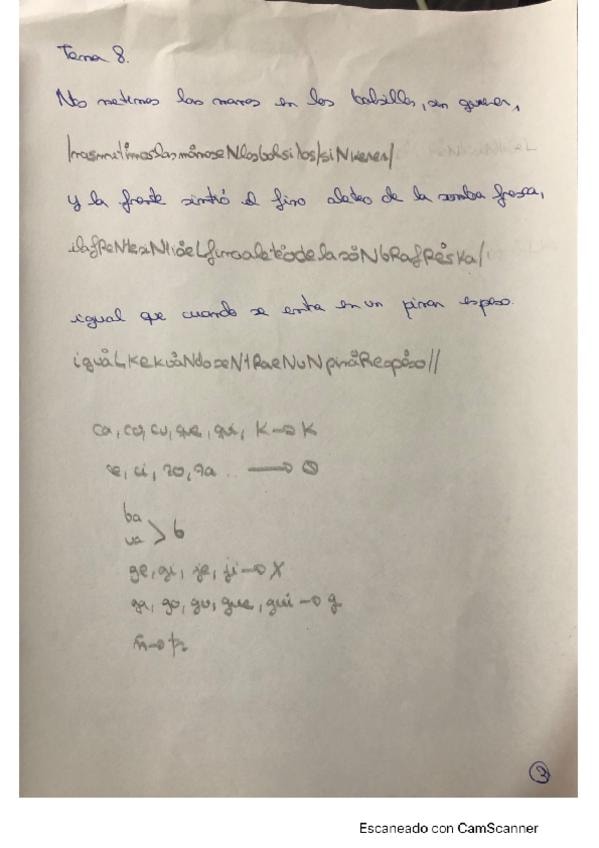 Tema 8.
Nos metimos las manos en los bolsillos, sin querer,
/nosmetimoslasmánoseNlosbolsiʎos/siNkerer/
y la frente sintió el fino aleteo de la sombra fresca,
ilafReNtesiNtióeLfinoaletéodelasóNbRafRéska/
igual que cuando se entra en un pinar espeso.
iguáLkekuáNdoseNtRaeNuNpináRespéso//
ca, co, cu, que, qui, k → k
ce, ci, zo, za.. → θ
ba
va > b
ge, gi, je, ji → x
ga, go, gu, gue, gui → g
3
Escaneado con CamScanner